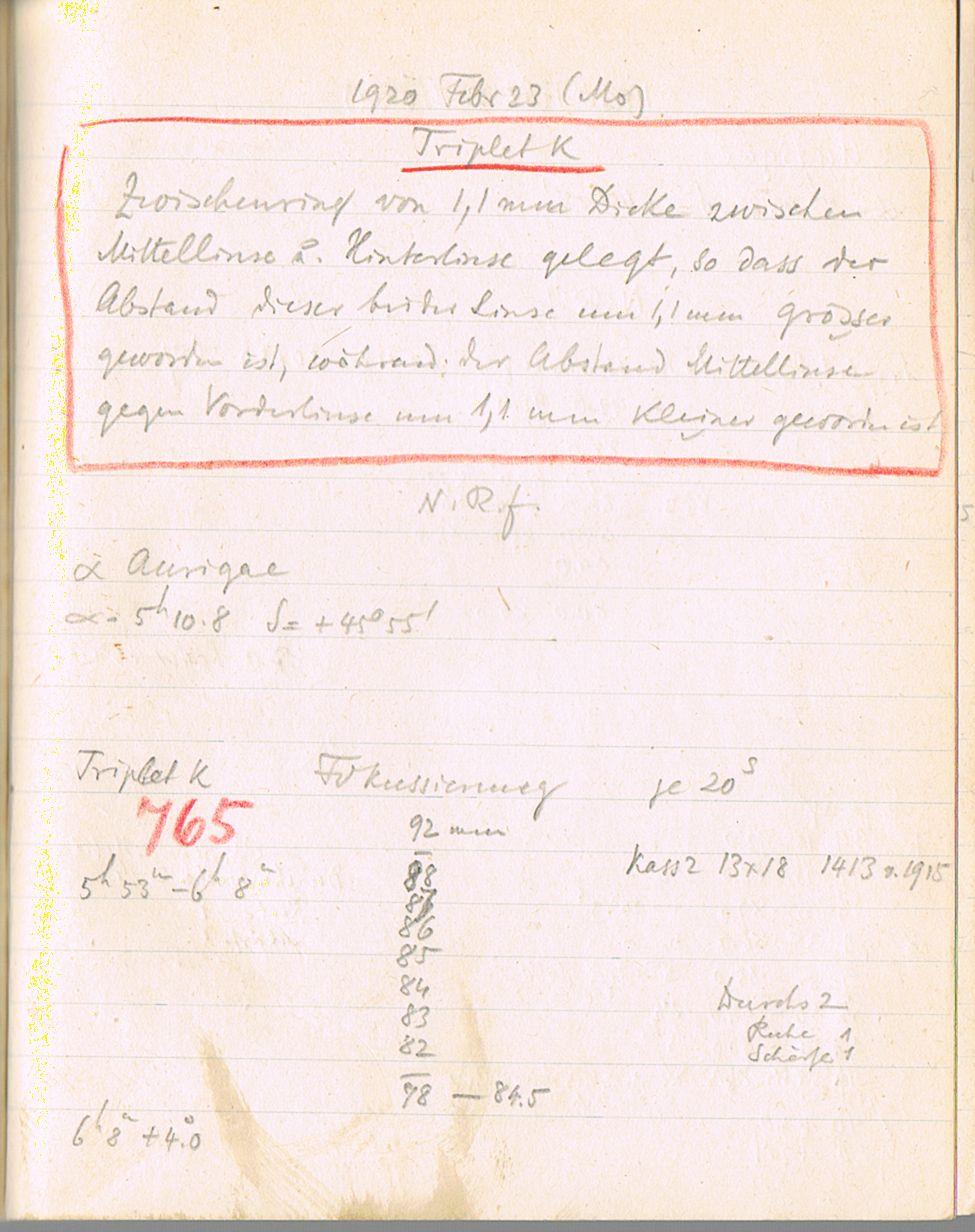 1920 Febr 23 (Mo)
Triplet K
Zwischenring von 1,1 mm Dicke zwischen
Mittellinse u. Hinterlinse gelegt, so dass der
Abstand dieser beider Linse um 1,1 mm grösser
geworden ist, während der Abstand Mittellinse
gegen Vorderlinse um 1,1 mm kleiner geworden ist
N. R. f.
α Aurigae
α = 5h 10.8 δ = +45° 55'
Triplet K Fokussierung je 20s
765
92 mm
5h 53m – 6h 8m 88 Kass 2 13x18 1413 v. 1915
86
85
84
83 Durchs 2
82 Ruhe 1
Schärfe 1
78 — 84.5
6h 8m +4.°0